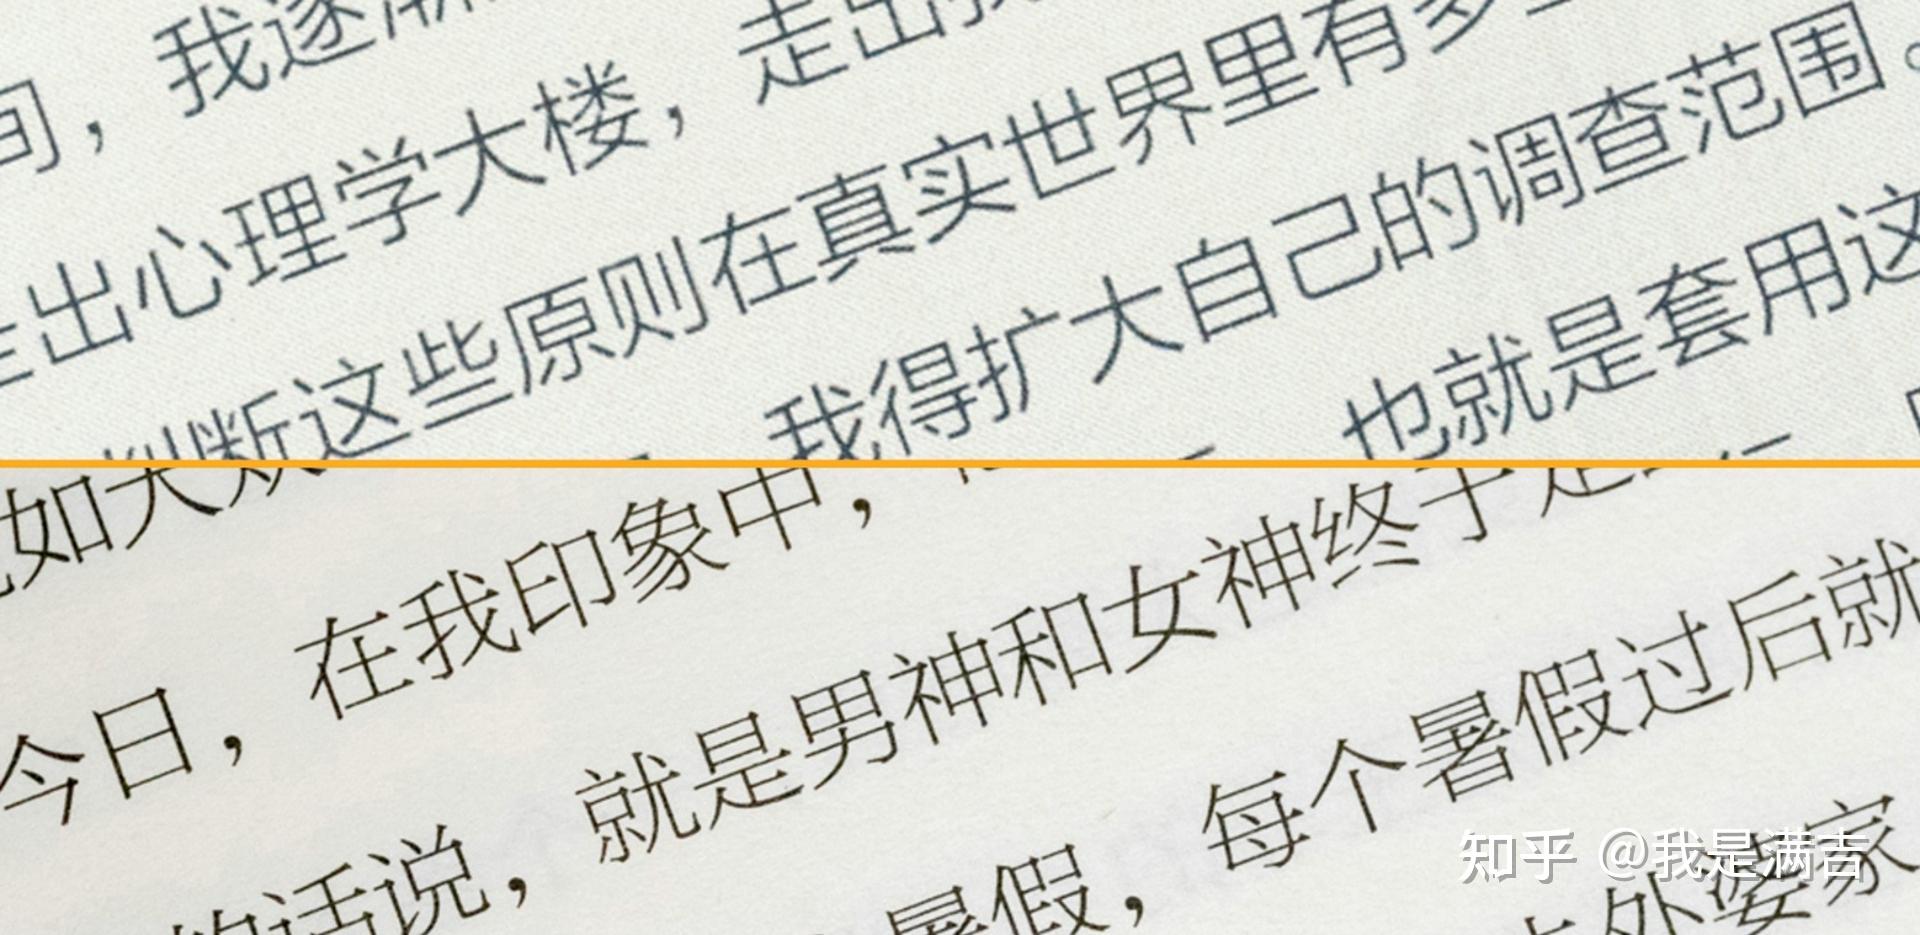 间，我逐渐
走出心理学大楼，走出我
判断这些原则在真实世界里有多
我得扩大自己的调查范围。
也就是套用这
如大
今日，在我印象中，
的话说，就是男神和女神终于是
暑假，每个暑假过后就
外婆家
知乎 @我是满吉